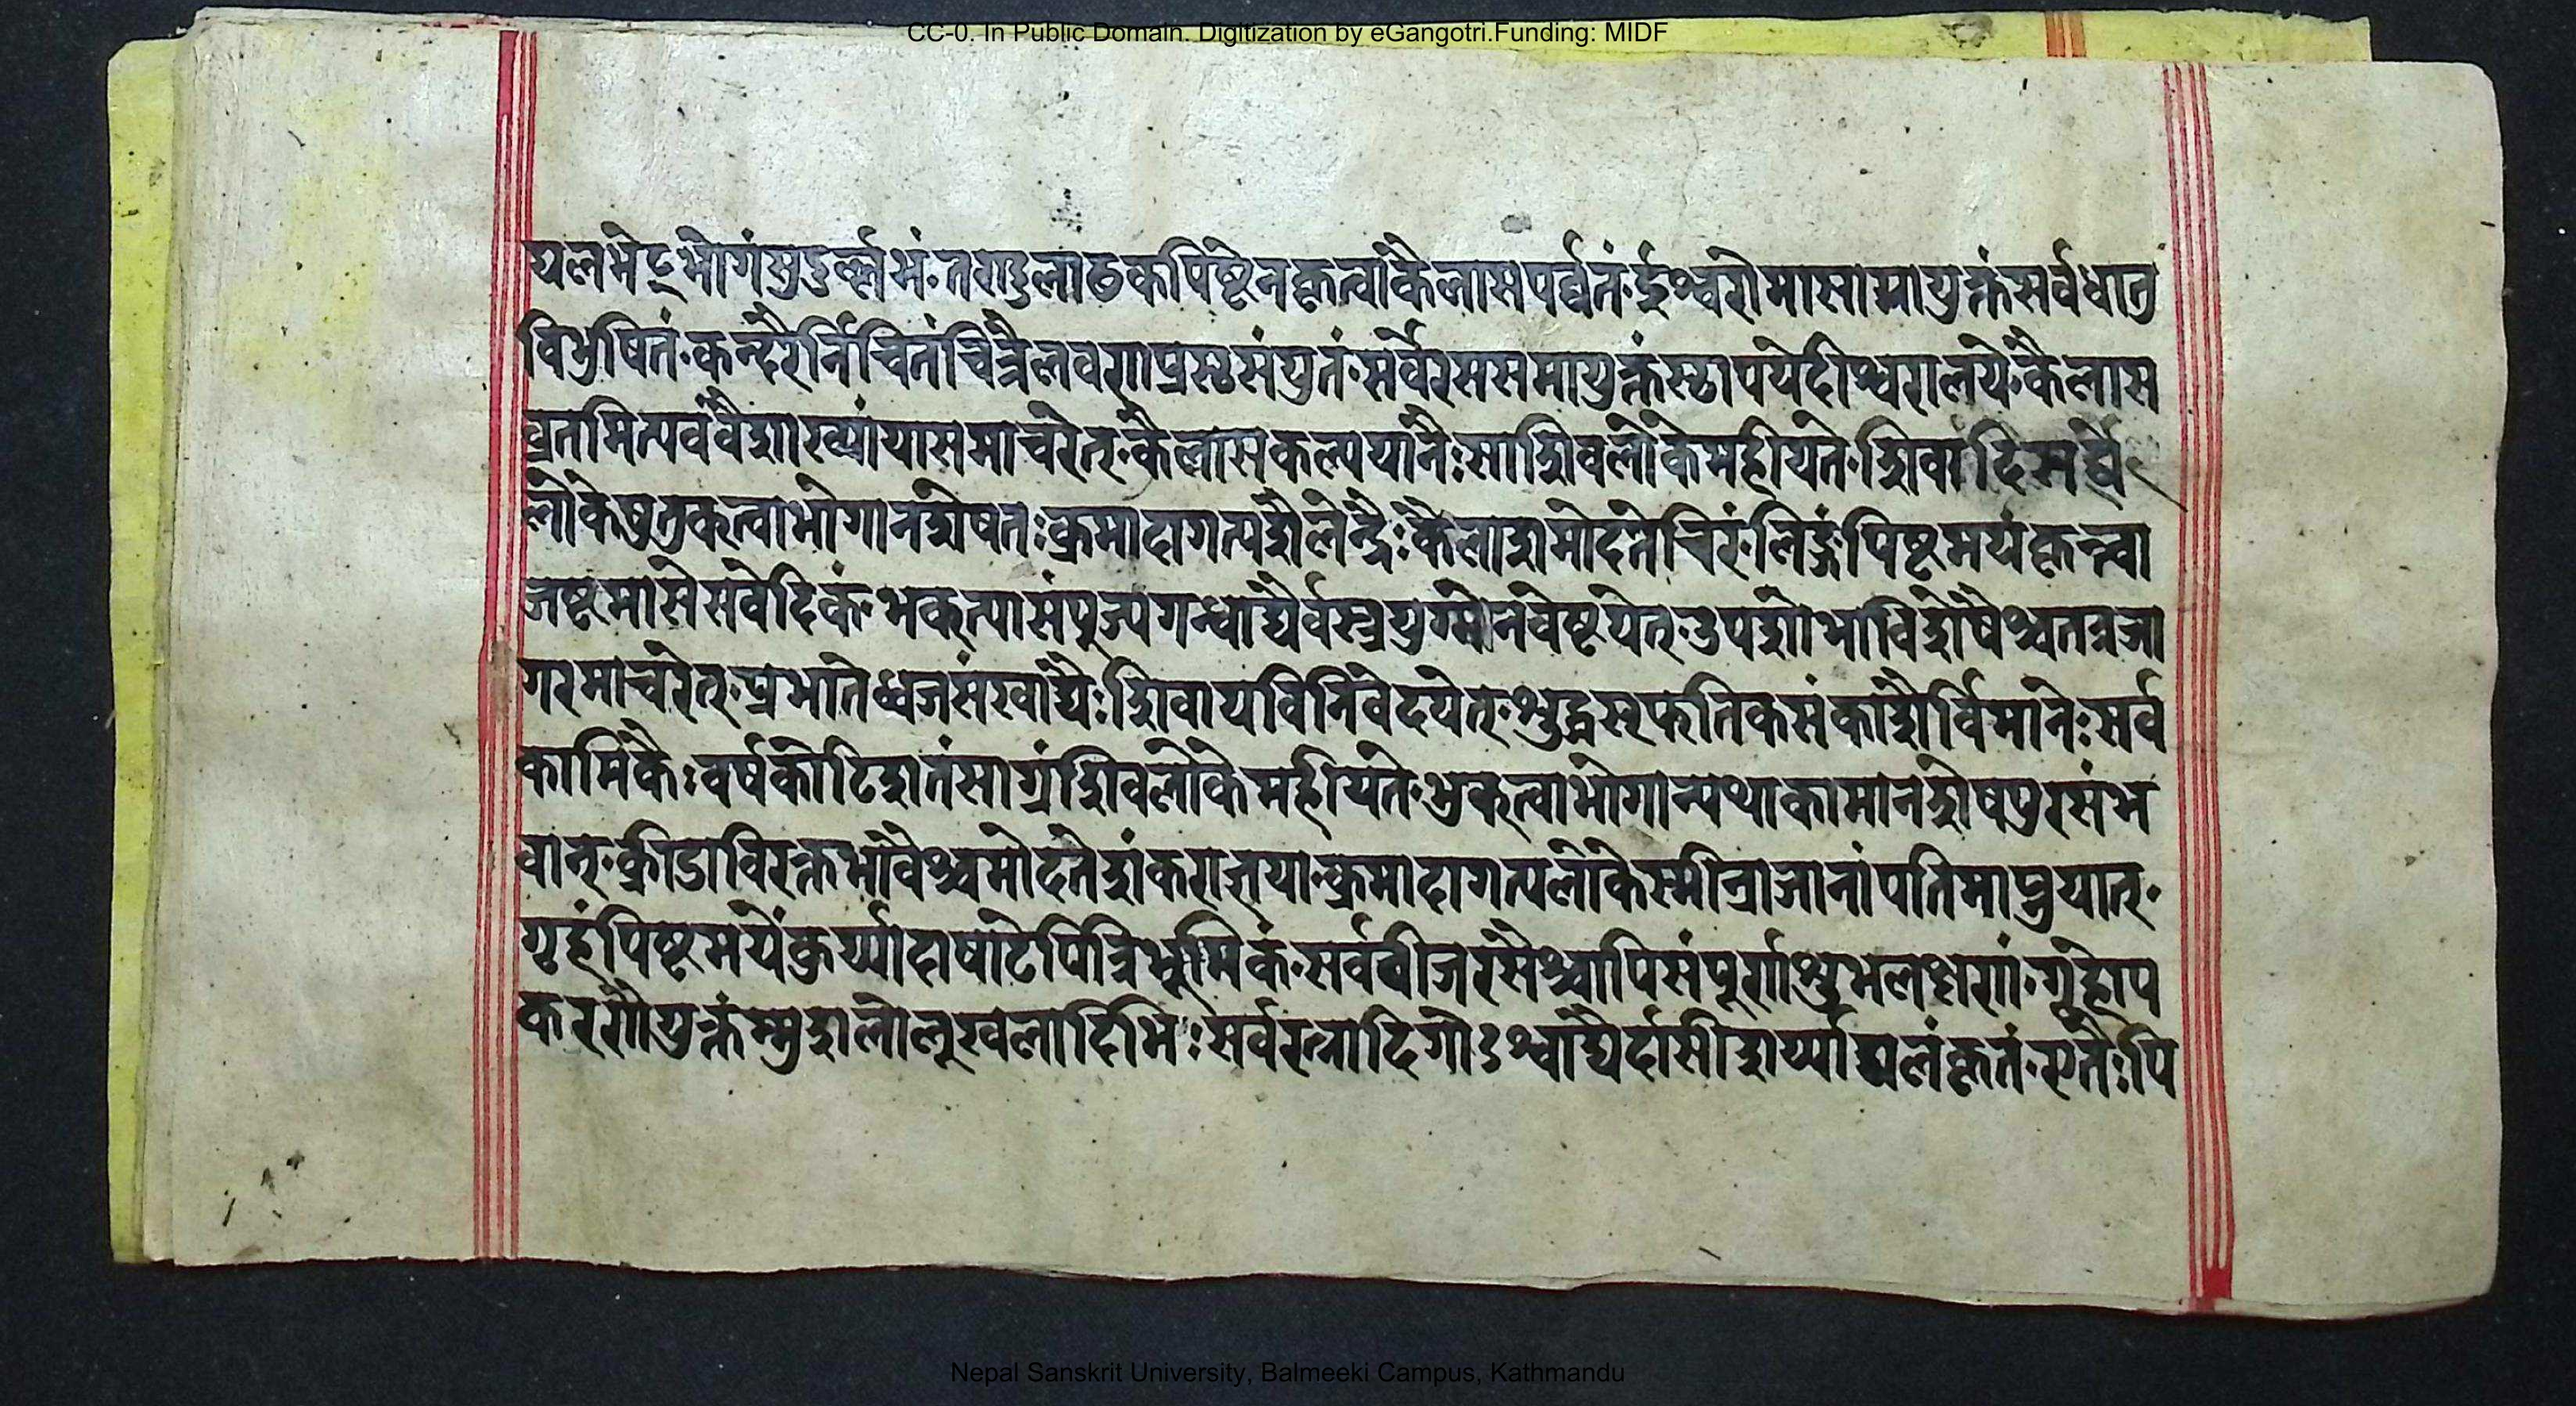 CC-0. In Public Domain. Digitization by eGangotri.Funding: MIDF
यलभेद्भोगंसुदुर्ल्लभं॰तण्डुलाढकपिष्टेनकृत्वाकैलासपर्व्वतं॰ईश्वरोमासामायुक्तंसर्वधातु
विभुषितं॰कन्दरैर्निचितंचित्रैलवणप्रस्थसंयुतं॰सर्वैरससमायुक्तंस्थापयेदीश्वरालये॰कैलास
व्रतमित्यवंवैशाख्यांयासमाचरेत्॰कैलासकल्पयानैःसाशिवलोकेमहीयते॰शिवादिसर्व्व
लोकेषुतुकत्वाभोगानशेषतःक्रमादागत्यशैलेन्द्रैःकैलाशमोदतेचिरं॰लिङ्गंपिष्टमयंकृत्त्वा
जष्टमासेसवेदिकं॰भक्त्यासंपुज्यगन्धाद्यैर्वस्त्रयुग्मेनवेष्टयेत्॰उपशोभाविशेषैश्चतत्रजा
गरमाचरेत्॰प्रभातेध्वजसंखाद्यैःशिवायविनिवेदयेत्॰शुद्धस्फतिकसंकाशैर्विमानेःसर्व
कामिकैःवर्षकोटिशतंसाग्रंशिवलोकेमहीयते॰भुक्त्वाभोगान्यथाकामानशेषपुरसंभ
वान्॰क्रीडाविरक्तभावैश्चमोदतेशंकराज्ञया॰क्रमादागत्यलोकेस्मीन्राजानांपतिमाप्नुयात्॰
गृहंपिष्टमयेंकुर्य्यादाषाटेपित्रिभूमिकं॰सर्ववीजरसैश्चापिसंपूर्णशुभलक्षणां॰गृहोप
करणैयुक्तंम्मुशलोलुखलादिभिःसर्वरत्नादिगोऽश्वाद्यैर्दासीशर्य्याद्यलंकृतं॰एतैःपि
Nepal Sanskrit University, Balmeeki Campus, Kathmandu